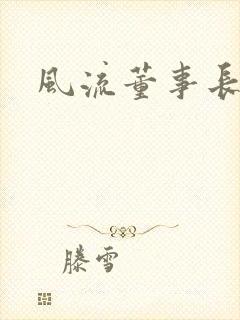 風流董事長
滕雪